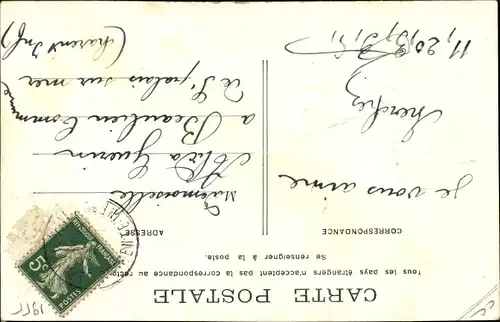 CARTE POSTALE
Tous les pays étrangers n'acceptent pas la correspondance au recto
Se renseigner à la poste.
CORRESPONDANCE
ADRESSE
Je vous aime
Cherchez
11, 20, 13, 5, 1,
Mademoiselle
Guerin
a Beaulieu Commune
de St palais sur mer
(Charente Inf)
5c
POSTES
1911